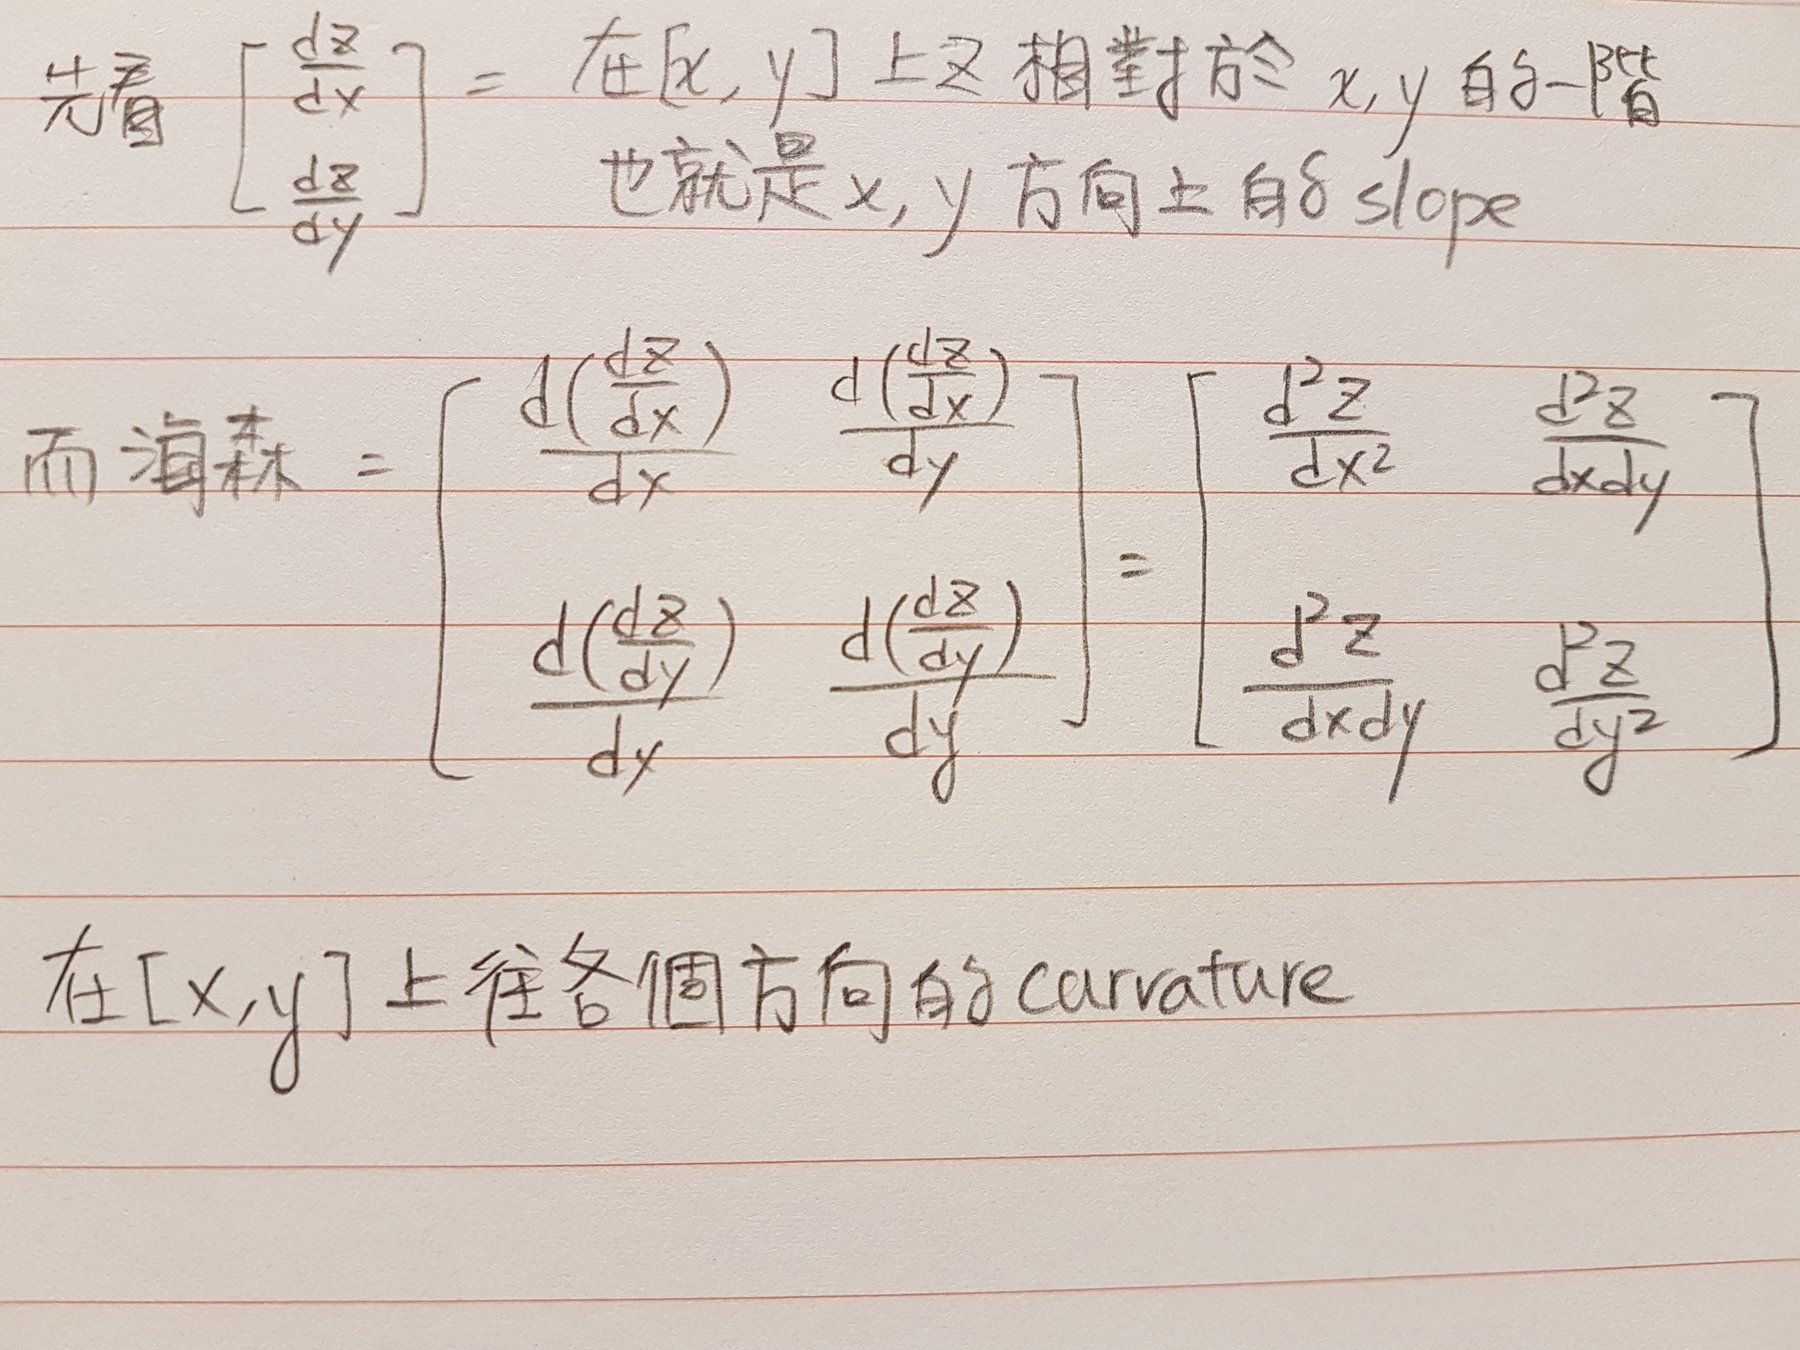 先看 [ dz/dx ; dz/dy ] = 在[x, y]上z相對於 x, y 的一階
也就是x, y 方向上的slope
而海森 = [ d(dz/dx)/dx  d(dz/dx)/dy ; d(dz/dy)/dx  d(dz/dy)/dy ] = [ d²z/dx²  d²z/dxdy ; d²z/dxdy  d²z/dy² ]
在[x, y]上往各個方向的curvature